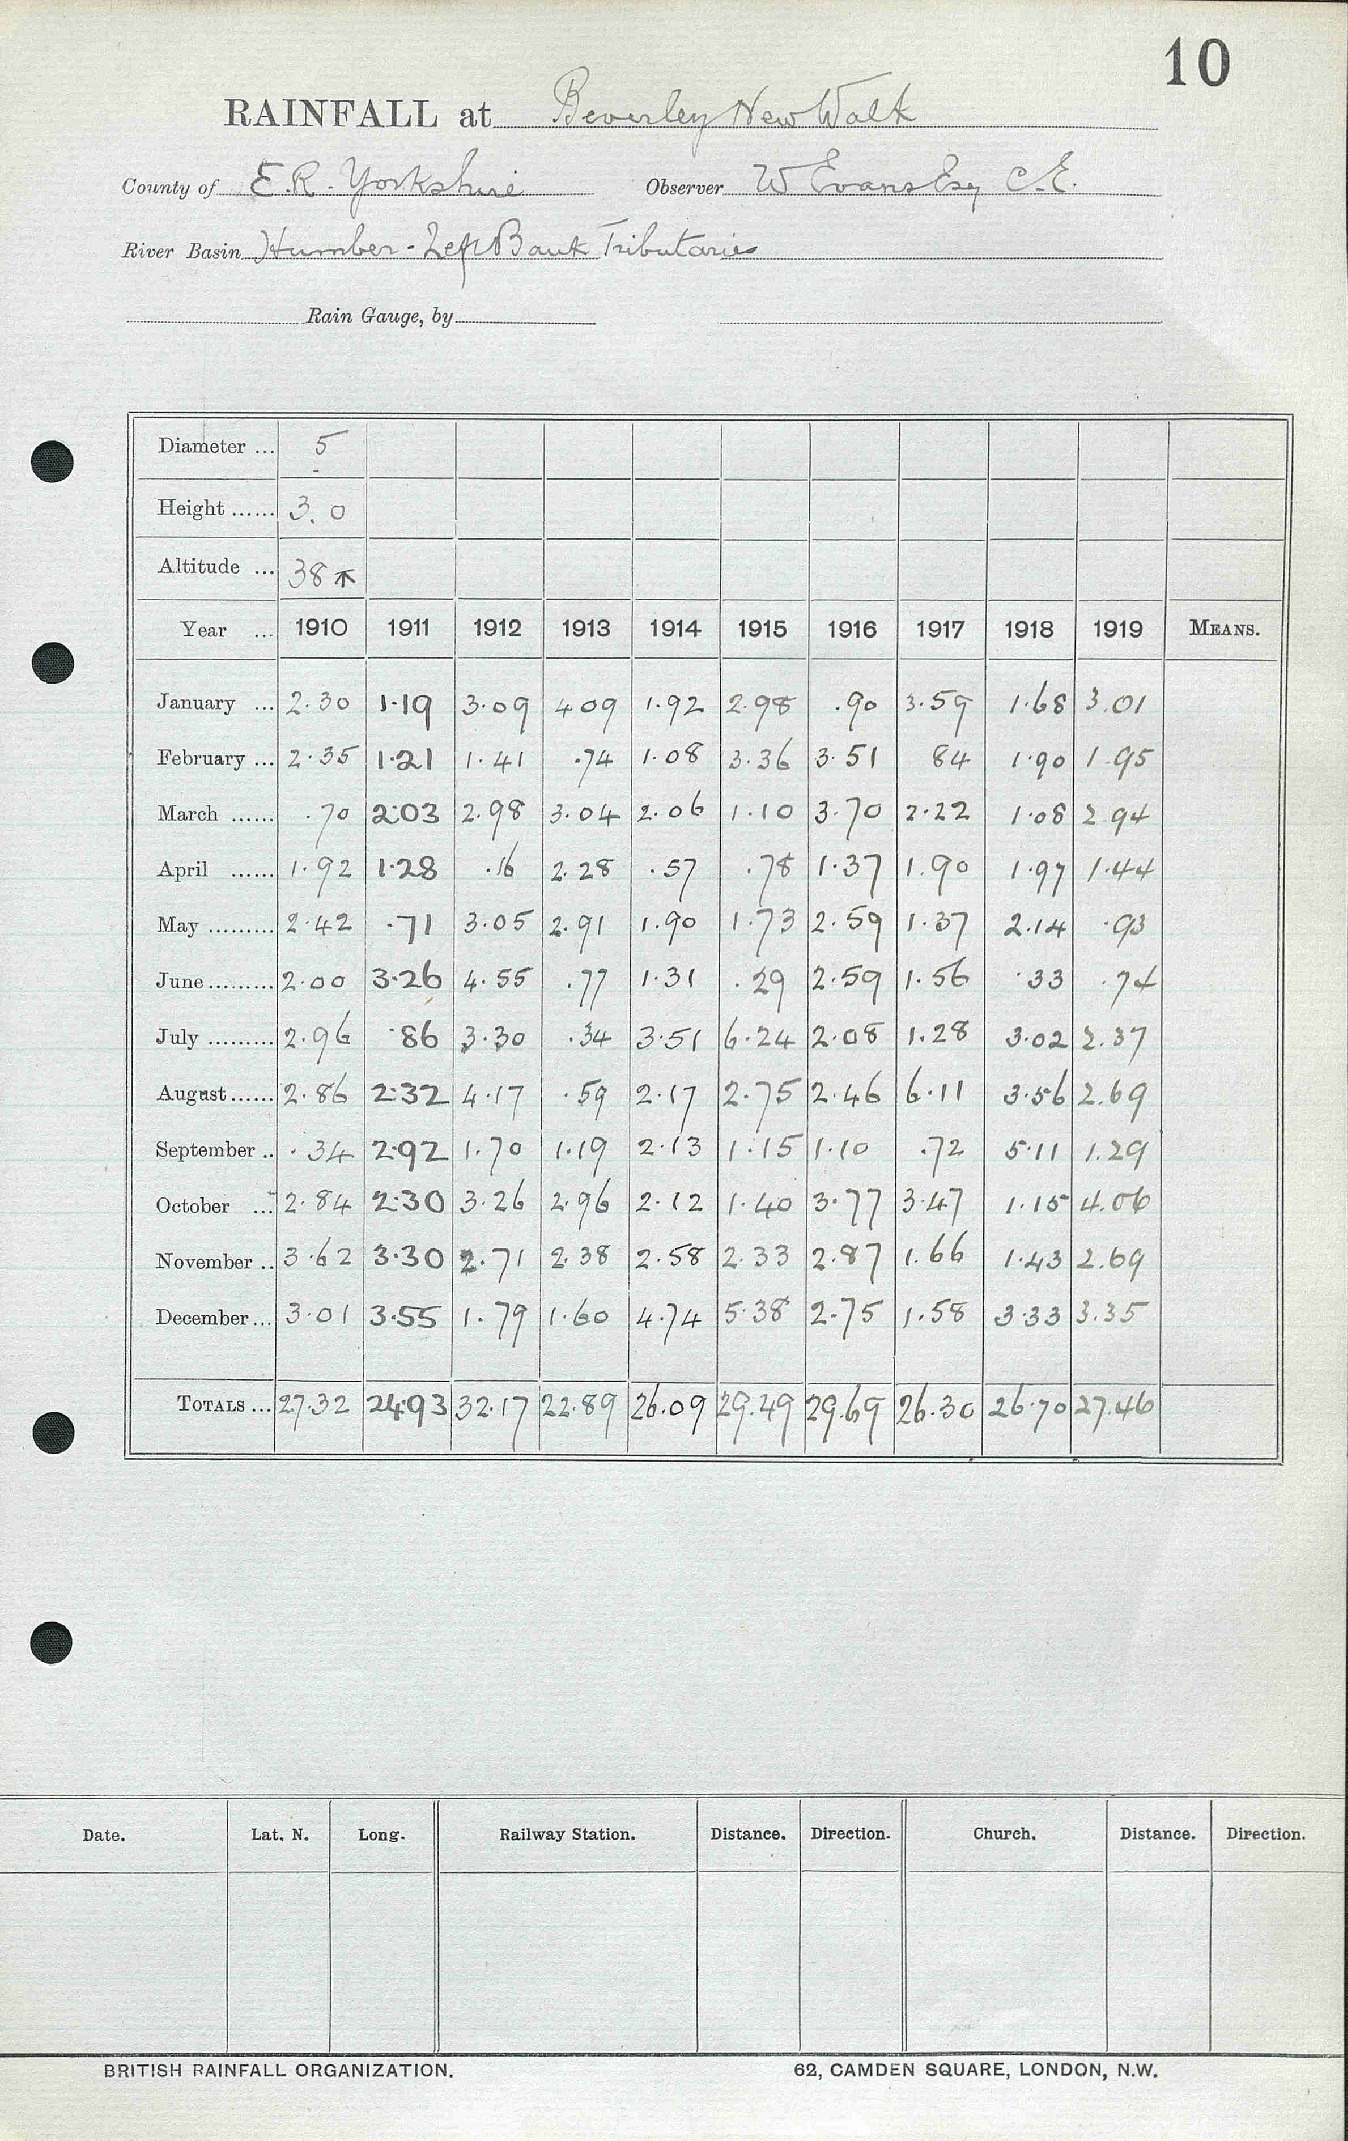 10
RAINFALL at Beverley New Walk
County of E.R. Yorkshire Observer W Evans Esq C.E.
River Basin Humber - Left Bank Tributaries
Rain Gauge, by
Diameter ... 5
Height ...... 3.0
Altitude ... 38
Year ... 1910 1911 1912 1913 1914 1915 1916 1917 1918 1919 MEANS.
January ... 2.30 1.19 3.09 4.09 1.92 2.98 .90 3.59 1.68 3.01
February ... 2.35 1.21 1.41 .74 1.08 3.36 3.51 84 1.90 1.95
March ...... .70 2.03 2.98 3.04 2.06 1.10 3.70 2.22 1.08 2.94
April ...... 1.92 1.28 .16 2.28 .57 .78 1.37 1.90 1.97 1.44
May ......... 2.42 .71 3.05 2.91 1.90 1.73 2.59 1.37 2.14 .93
June ......... 2.00 3.26 4.55 .77 1.31 .29 2.59 1.56 .33 .74
July ......... 2.96 .86 3.30 .34 3.51 6.24 2.08 1.28 3.02 2.37
August ...... 2.86 2.32 4.17 .59 2.17 2.75 2.46 6.11 3.56 2.69
September .. .34 2.92 1.70 1.19 2.13 1.15 1.10 .72 5.11 1.29
October ... 2.84 2.30 3.26 2.96 2.12 1.40 3.77 3.47 1.15 4.06
November .. 3.62 3.30 2.71 2.38 2.58 2.33 2.87 1.66 1.43 2.69
December ... 3.01 3.55 1.79 1.60 4.74 5.38 2.75 1.58 3.33 3.35
TOTALS ... 27.32 24.93 32.17 22.89 26.09 29.49 29.69 26.30 26.70 27.46
Date. Lat. N. Long. Railway Station. Distance. Direction. Church. Distance. Direction.
BRITISH RAINFALL ORGANIZATION. 62, CAMDEN SQUARE, LONDON, N.W.